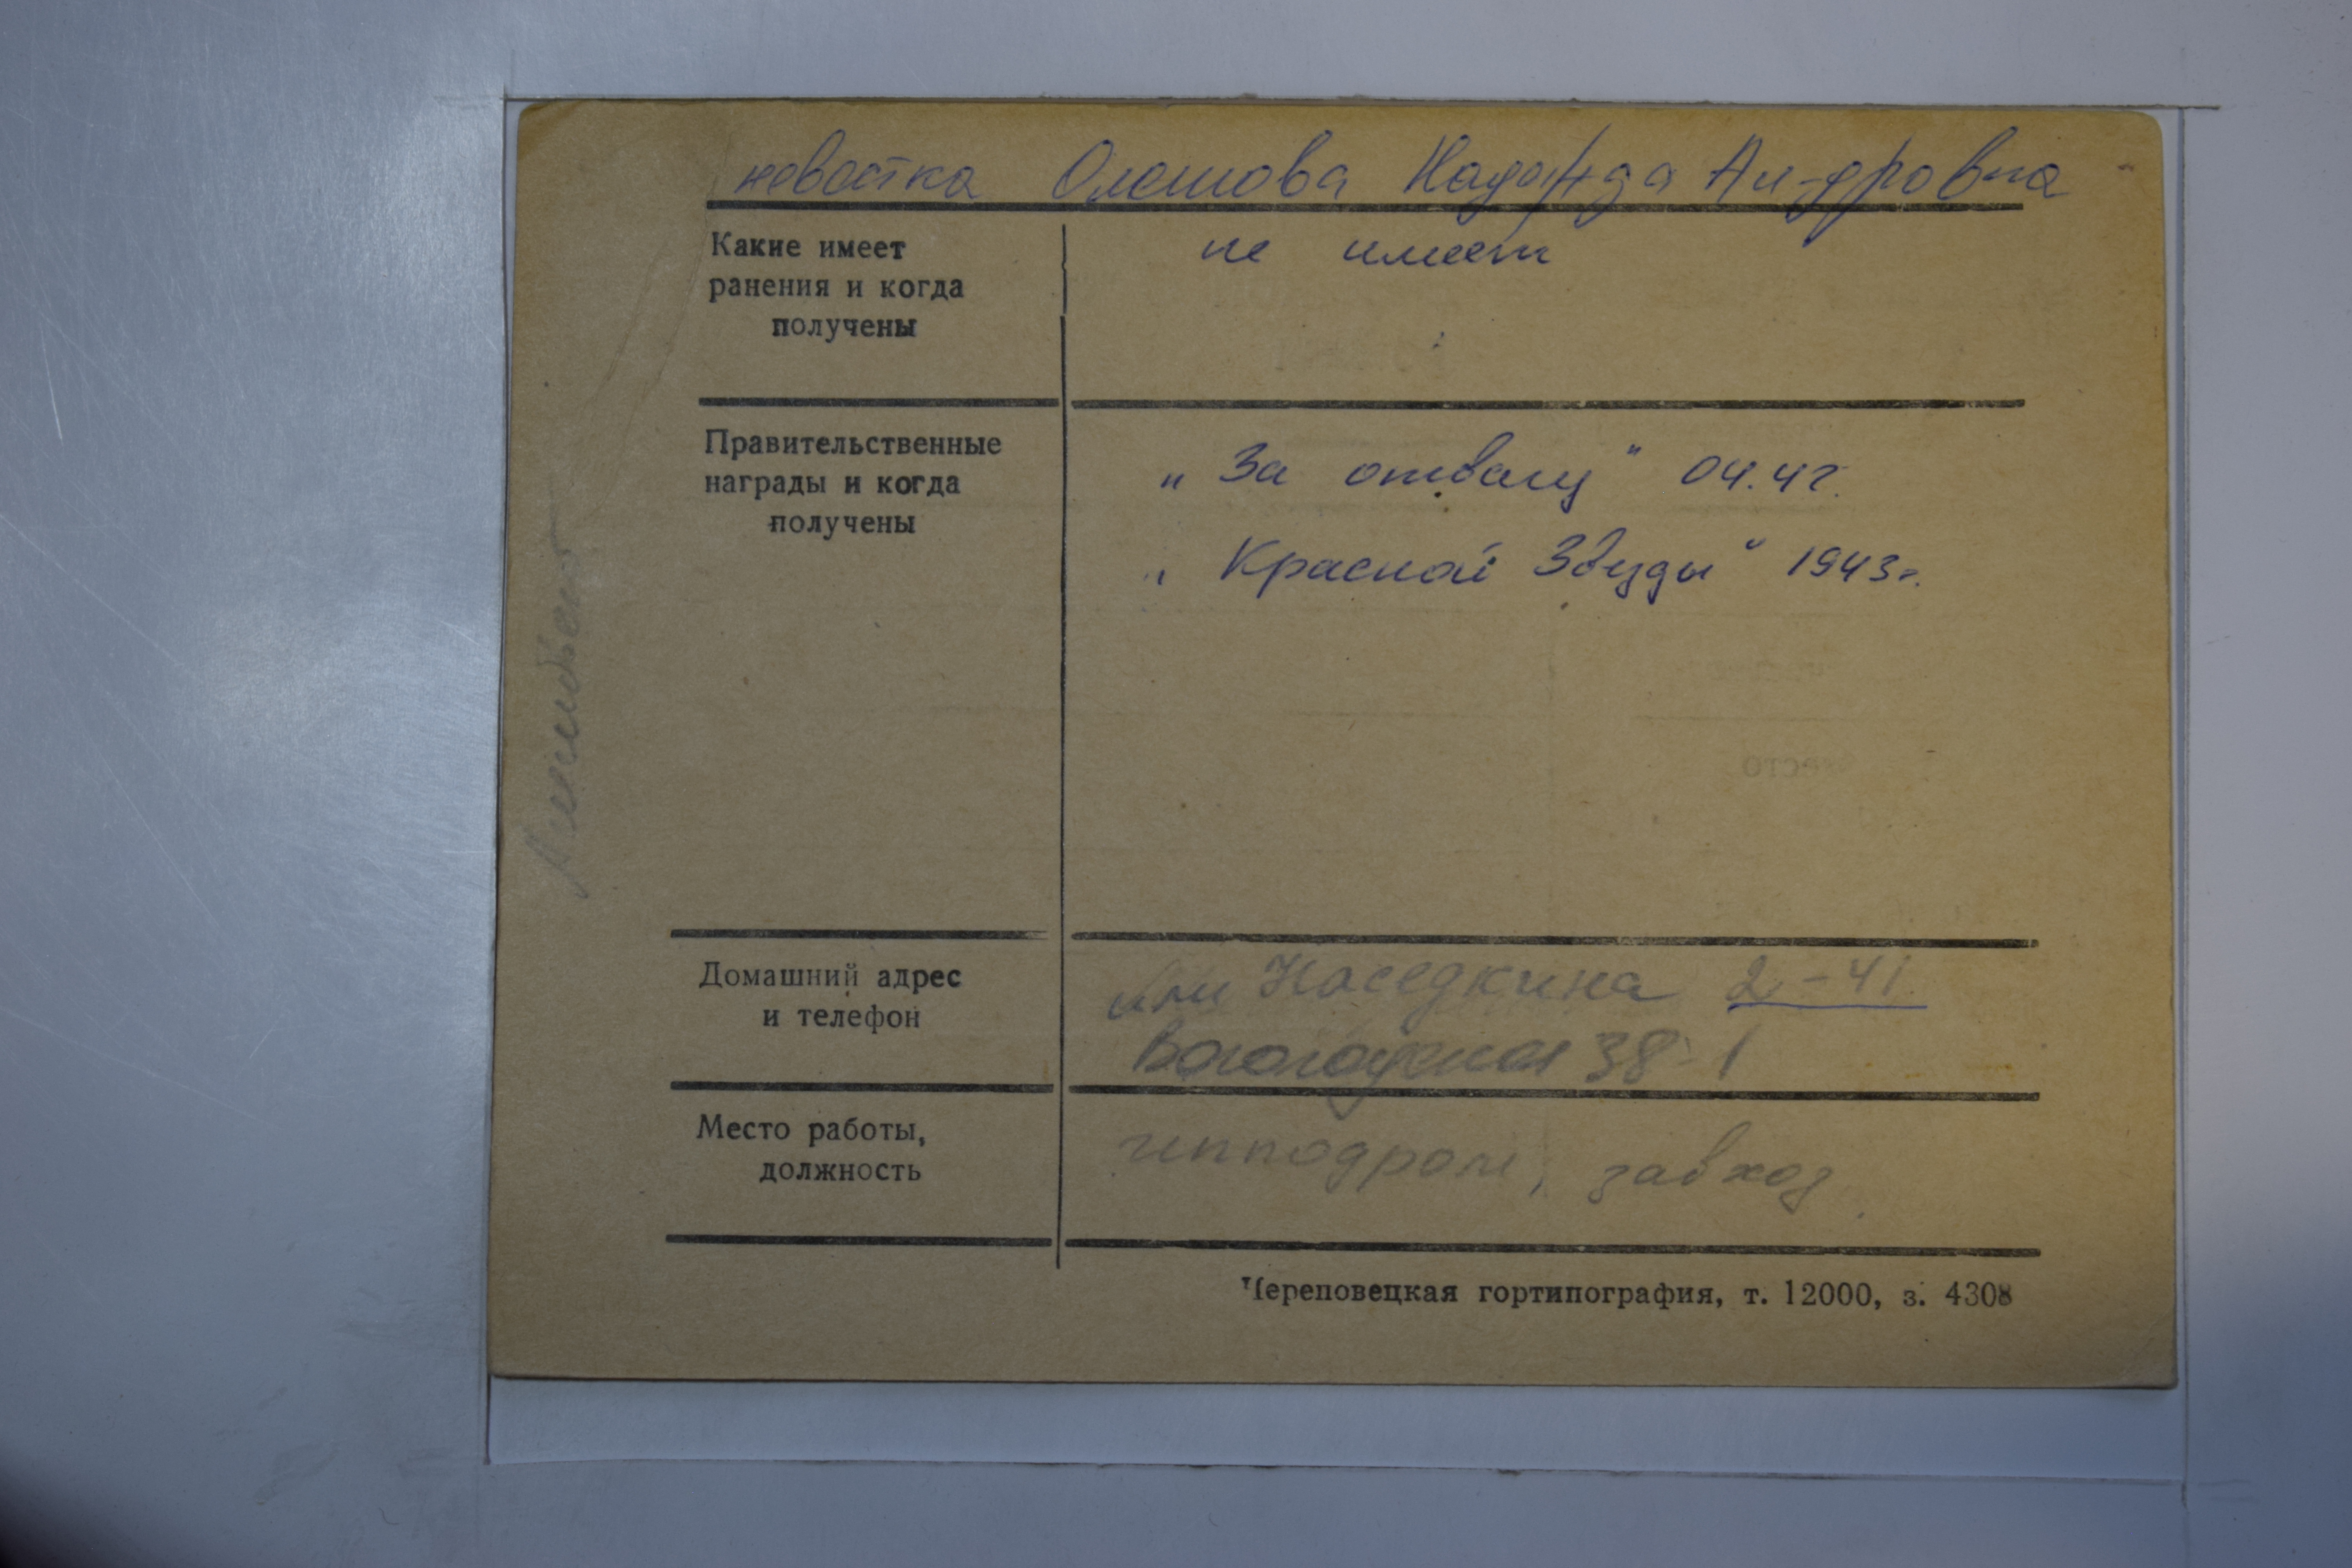 невестка Олешова Надежда Ал-дровна
Какие имеет
ранения и когда
получены
не имеет
Правительственные
награды и когда
получены
„ За отвагу " 04.42.
„ Красной Звезды " 1943г.
Домашний адрес
и телефон
Наседкина 2-41
Вологодская 38-1
Место работы,
должность
ипподром, завхоз
Череповецкая гортипография, т. 12000, з. 4308